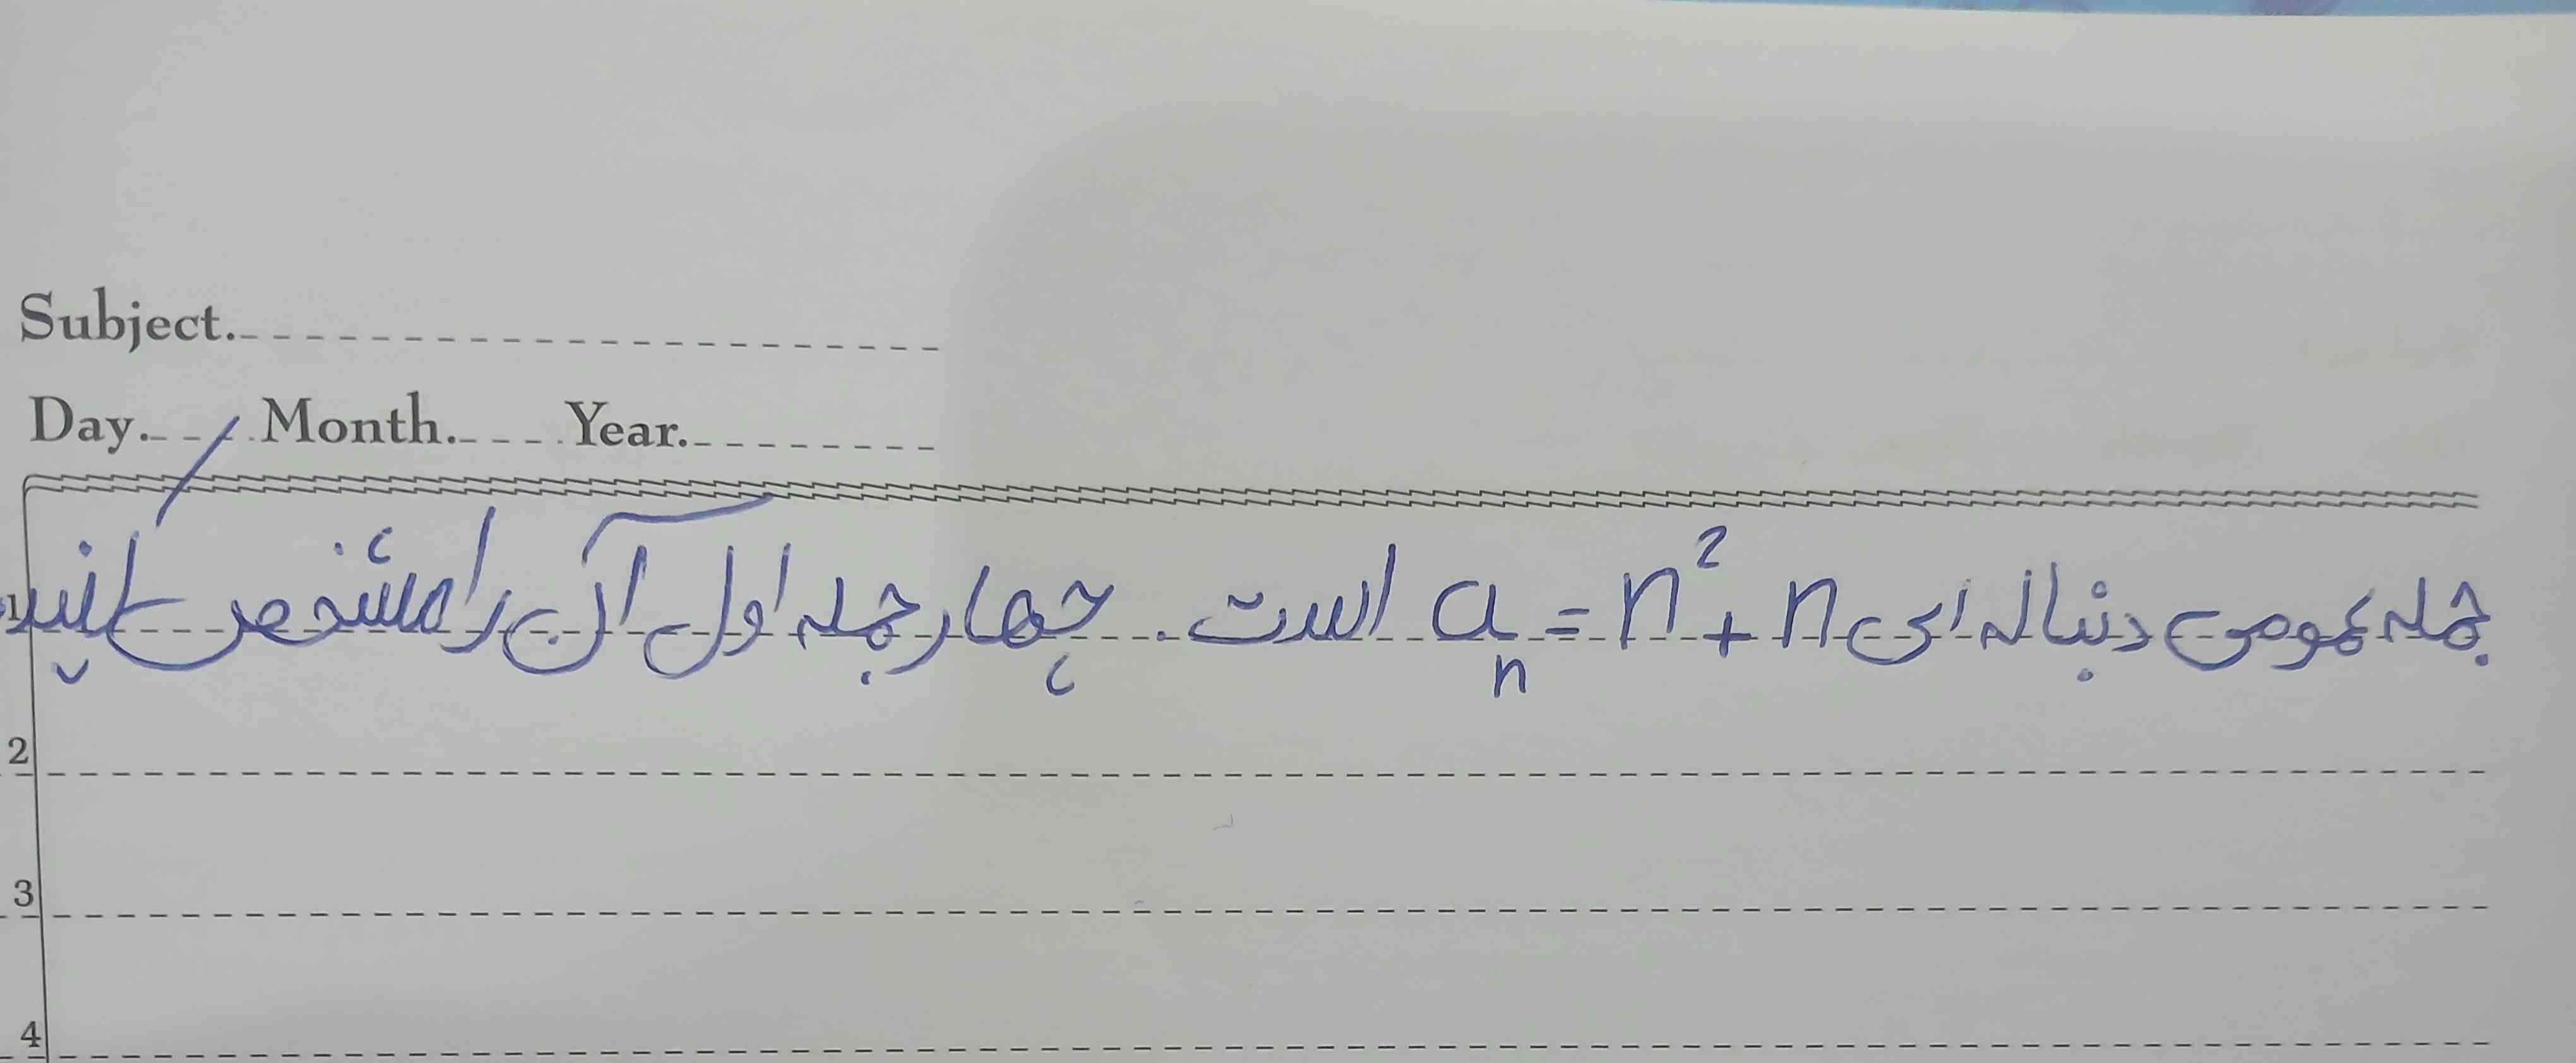 Subject.
Day. Month. Year.
1 جمله عمومی دنباله ای aₙ = n² + n است. چهار جمله اول آن را مشخص کنید
2
3
4